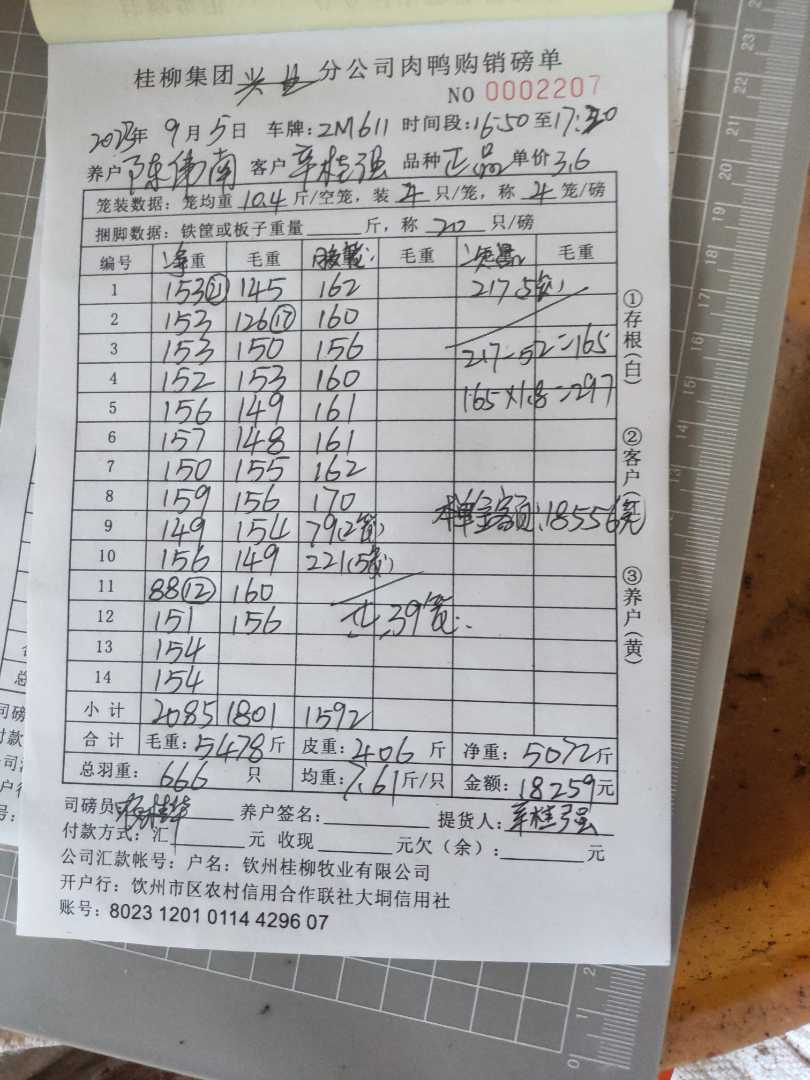 桂柳集团 兴业 分公司肉鸭购销磅单
NO 0002207
2023年 9月 5日 车牌: 2M611 时间段: 16:50 至 17:30
养户 陈伟南 客户 辛桂强 品种 正品 单价 3.6
笼装数据: 笼均重 10.4 斤/空笼, 装 4 只/笼, 称 4 笼/磅
捆脚数据: 铁筐或板子重量 斤, 称 20 只/磅
编号 净重 毛重 毛重 毛重
1 153(21) 145 162 217(5笼)
2 153 126(17) 160
3 153 150 156 217-52=165
4 152 153 160 165×1.8=297
5 156 149 161
6 157 148 161
7 150 155 162
8 159 156 170 本单金额:18556元
9 149 154 79(2笼)
10 156 149 221(5笼)
11 88(12) 160
12 151 156 共39笼
13 154
14 154
小计 2085 1801 1592
合计 毛重: 5478 斤 皮重: 406 斤 净重: 5072 斤
总羽重: 666 只 均重: 7.61 斤/只 金额: 18259 元
司磅员 杨桂华 养户签名: 提货人: 辛桂强
付款方式: 汇 元 收现 元欠(余): 元
公司汇款帐号: 户名: 钦州桂柳牧业有限公司
开户行: 饮州市区农村信用合作联社大垌信用社
账号: 8023 1201 0114 4296 07
①存根(白)
②客户(红)
③养户(黄)